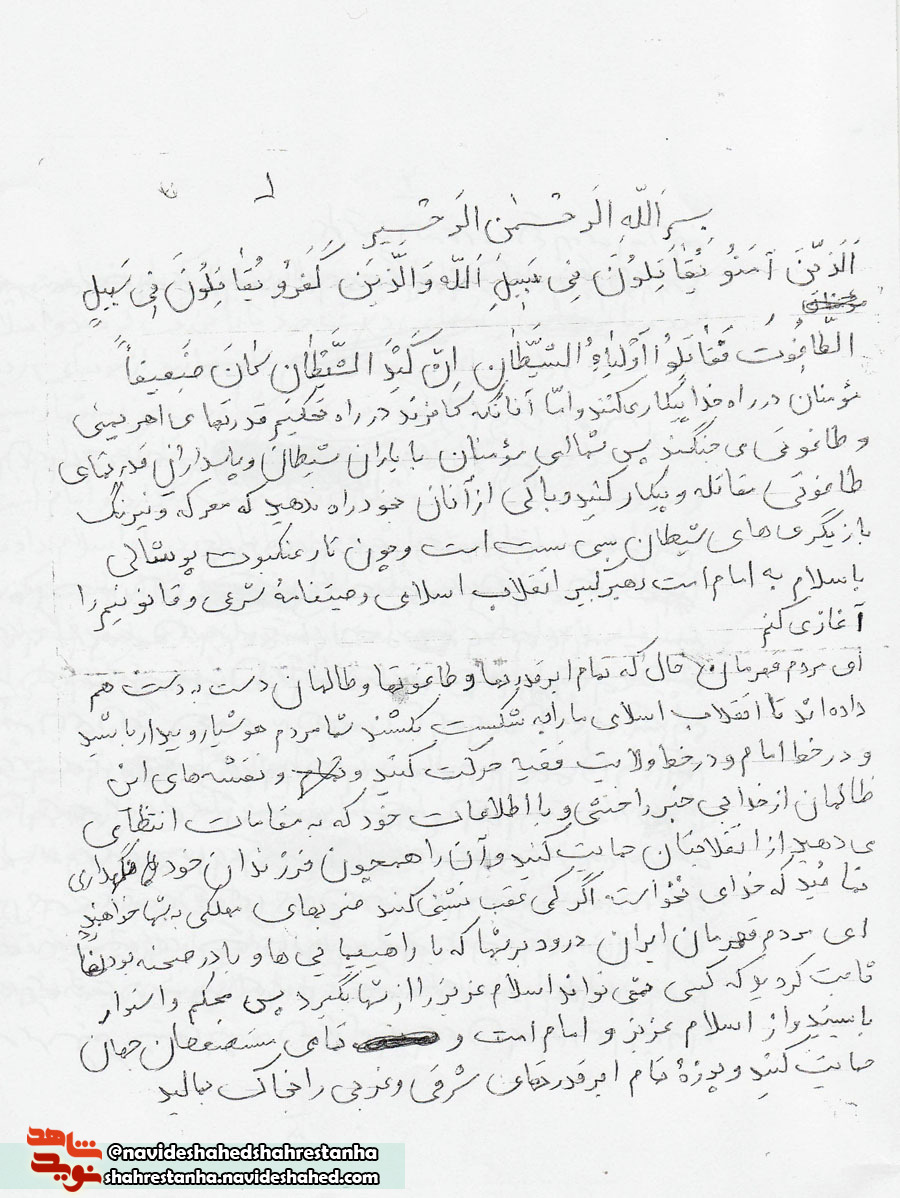 ۱
بسم اللّهِ الرَحمٰن الرَحیم
اَلَذّینَ آمَنوُ یُقٰاتِلوُنَ فِی سَبیلِ اَللّه وَالّذینَ کَفَروُ یُقٰاتِلوُنَ فِی سَبیلِ
الطّاغُوت فَقٰاتِلوُا اَوْلیٰاءِ الشَیّطٰانِ اِنّ کَیْدَ الشَیّطٰان کٰانَ ضَعیفاً
مؤمنان در راه خدا پیکار می کنند و امّا آنانکه کافرند در راه تحکیم قدرتهای اهریمنی
و طاغوتی می جنگند پس شما ای مؤمنان با یاران شیطان و پاسداران قدرتهای
طاغوتی مقاتله و پیکار کنید و باکی از آنان بخود راه ندهید که معرکه و نیرنگ
بازیگری های شیطان بسی سست است و چون تار عنکبوت پوشالی
با سلام به امام امت رهبر کبیر انقلاب اسلامی وصیتنامهٔ شرعی و قانونیم را
آغاز می کنم
ای مردم قهرمان حال که تمام ابرقدرتها و طاغوتها و ظالمان دست به دست هم
داده اند تا انقلاب اسلامی ما را به شکست بکشند شما مردم هوشیار و بیدار باشید
و در خط امام و در خط ولایت فقیه حرکت کنید و نقشه های این
ظالمان از خدا بی خبر را خنثی و با اطلاعات خود که به مقامات انتظامی
می دهید از انقلابتان حمایت کنید و آن را همچون فرزندان خود نگهداری
نمائید که خدای نخواسته اگر کمی عقب نشینی کنید ضربهای مهلکی به شما خواهند
ای مردم قهرمان ایران درود بر شما که با راهپیمایی ها و با در صحنه بودنتان
ثابت کردید که کسی نمی تواند اسلام عزیز را از شما بگیرد پس محکم و استوار
بایستید و از اسلام عزیز و امام امت و تمامی مستضعفان جهان
حمایت کنید و پوزهٔ تمام ابرقدرتهای شرقی و غربی را بخاک بمالید
شاهد
نوید
@navideshahedshahrestanha
shahrestanha.navideshahed.com